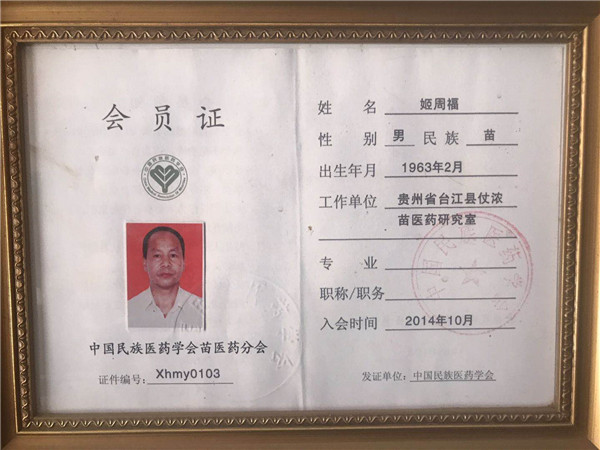 会员证
中国民族医药学会苗医药分会
证件编号：Xhmy0103
姓名 姬周福
性别 男 民族 苗
出生年月 1963年2月
工作单位 贵州省台江县仗浓
苗医药研究室
专业
职称/职务
入会时间 2014年10月
发证单位：中国民族医药学会
中国民族医药学会